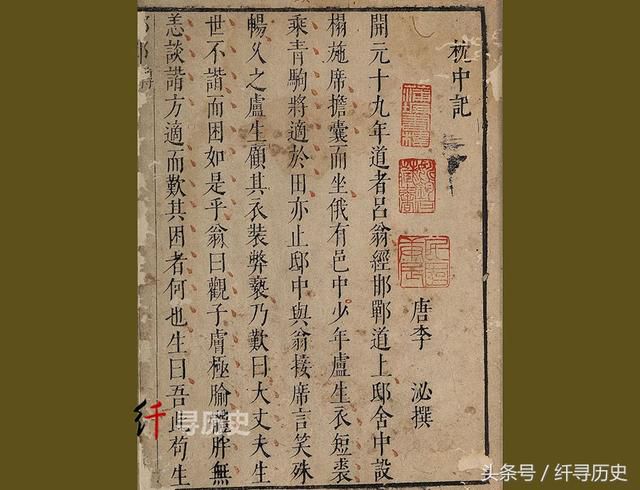 枕中記
唐李　泌撰
開元十九年道者呂翁經邯鄲道上邸舍中設
榻施席擔囊而坐俄有邑中少年盧生衣短裘
乘青駒將適於田亦止邸中與翁接席言笑殊
暢久之盧生顧其衣裝弊褻乃歎曰大丈夫生
世不諧而困如是乎翁曰觀子膚極腧體胖無
恙談諧方適而歎其困者何也生曰吾此苟生
纤寻历史
头条号 / 纤寻历史